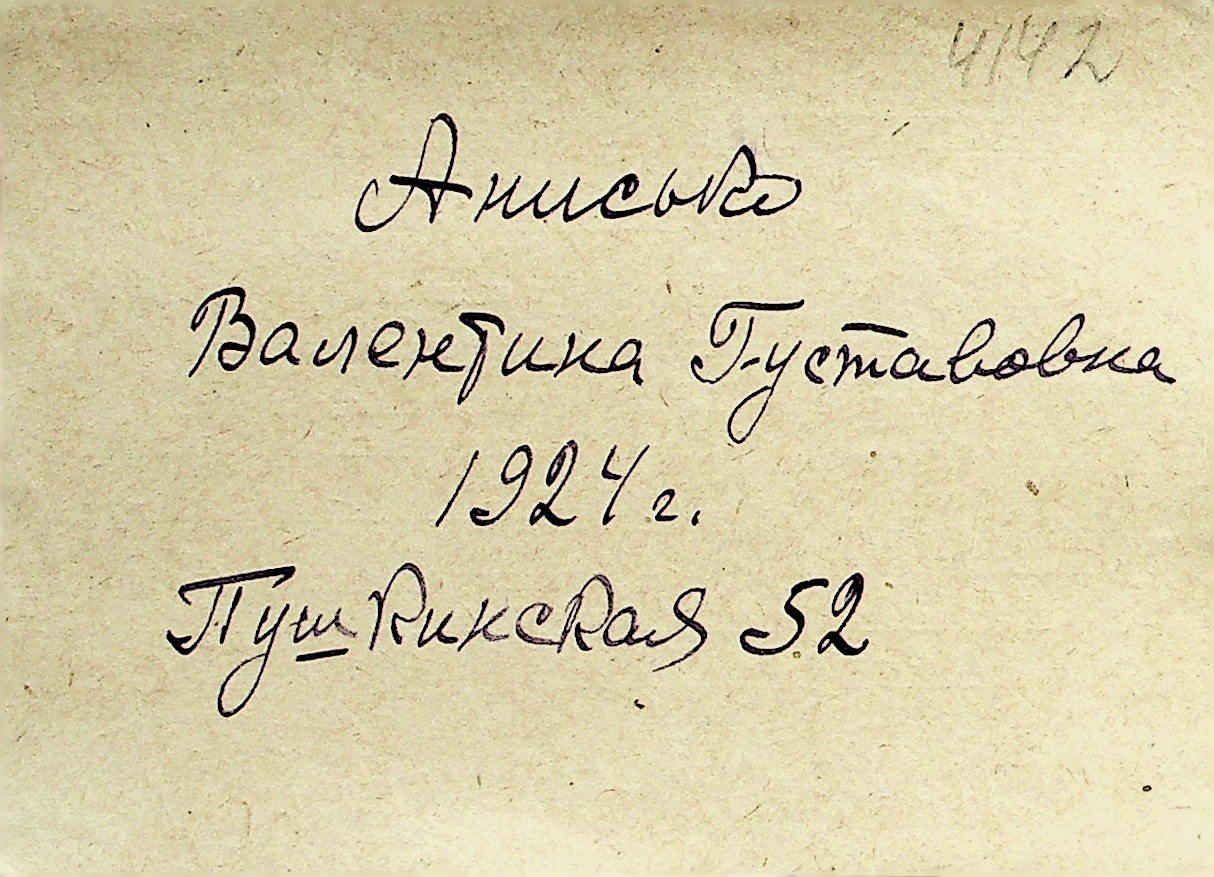 4142
Анисько
Валентина Густавовна
1924 г.
Пушкинская 52